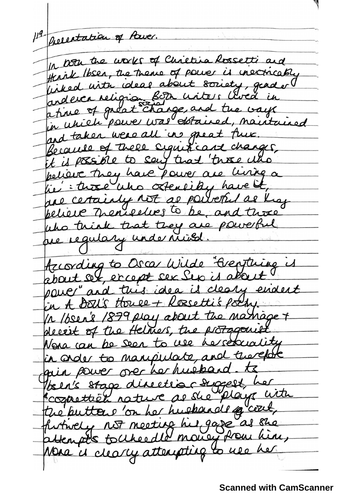 Presentation of Power.
In both the works of Christina Rossetti and
Henrik Ibsen, the theme of power is inextricably
linked with ideas about society, gender
and even religion. Both writers lived in
a time of great social change, and the ways
in which power was obtained, maintained
and taken were all in great flux.
Because of these significant changes,
it is possible to say that 'those who
believe they have power are living a
lie': those who ostensibly have it,
are certainly not as powerful as they
believe themselves to be, and those
who think that they are powerful
are regularly undermined.
According to Oscar Wilde "Everything is
about sex, except sex. Sex is about
power" and this idea is clearly evident
in A Doll's House + Rossetti's poetry.
In Ibsen's 1899 play about the marriage +
deceit of the Helmers, the protagonist
Nora can be seen to use her sexuality
in order to manipulate, and therefore
gain power over her husband. As
Ibsen's stage directions suggest, her
"coquettish nature as she plays with
the buttons 'on her husbands coat,
furtively not meeting his gaze as she
attempts to wheedle money from him,
Nora is clearly attempting to use her
Scanned with CamScanner